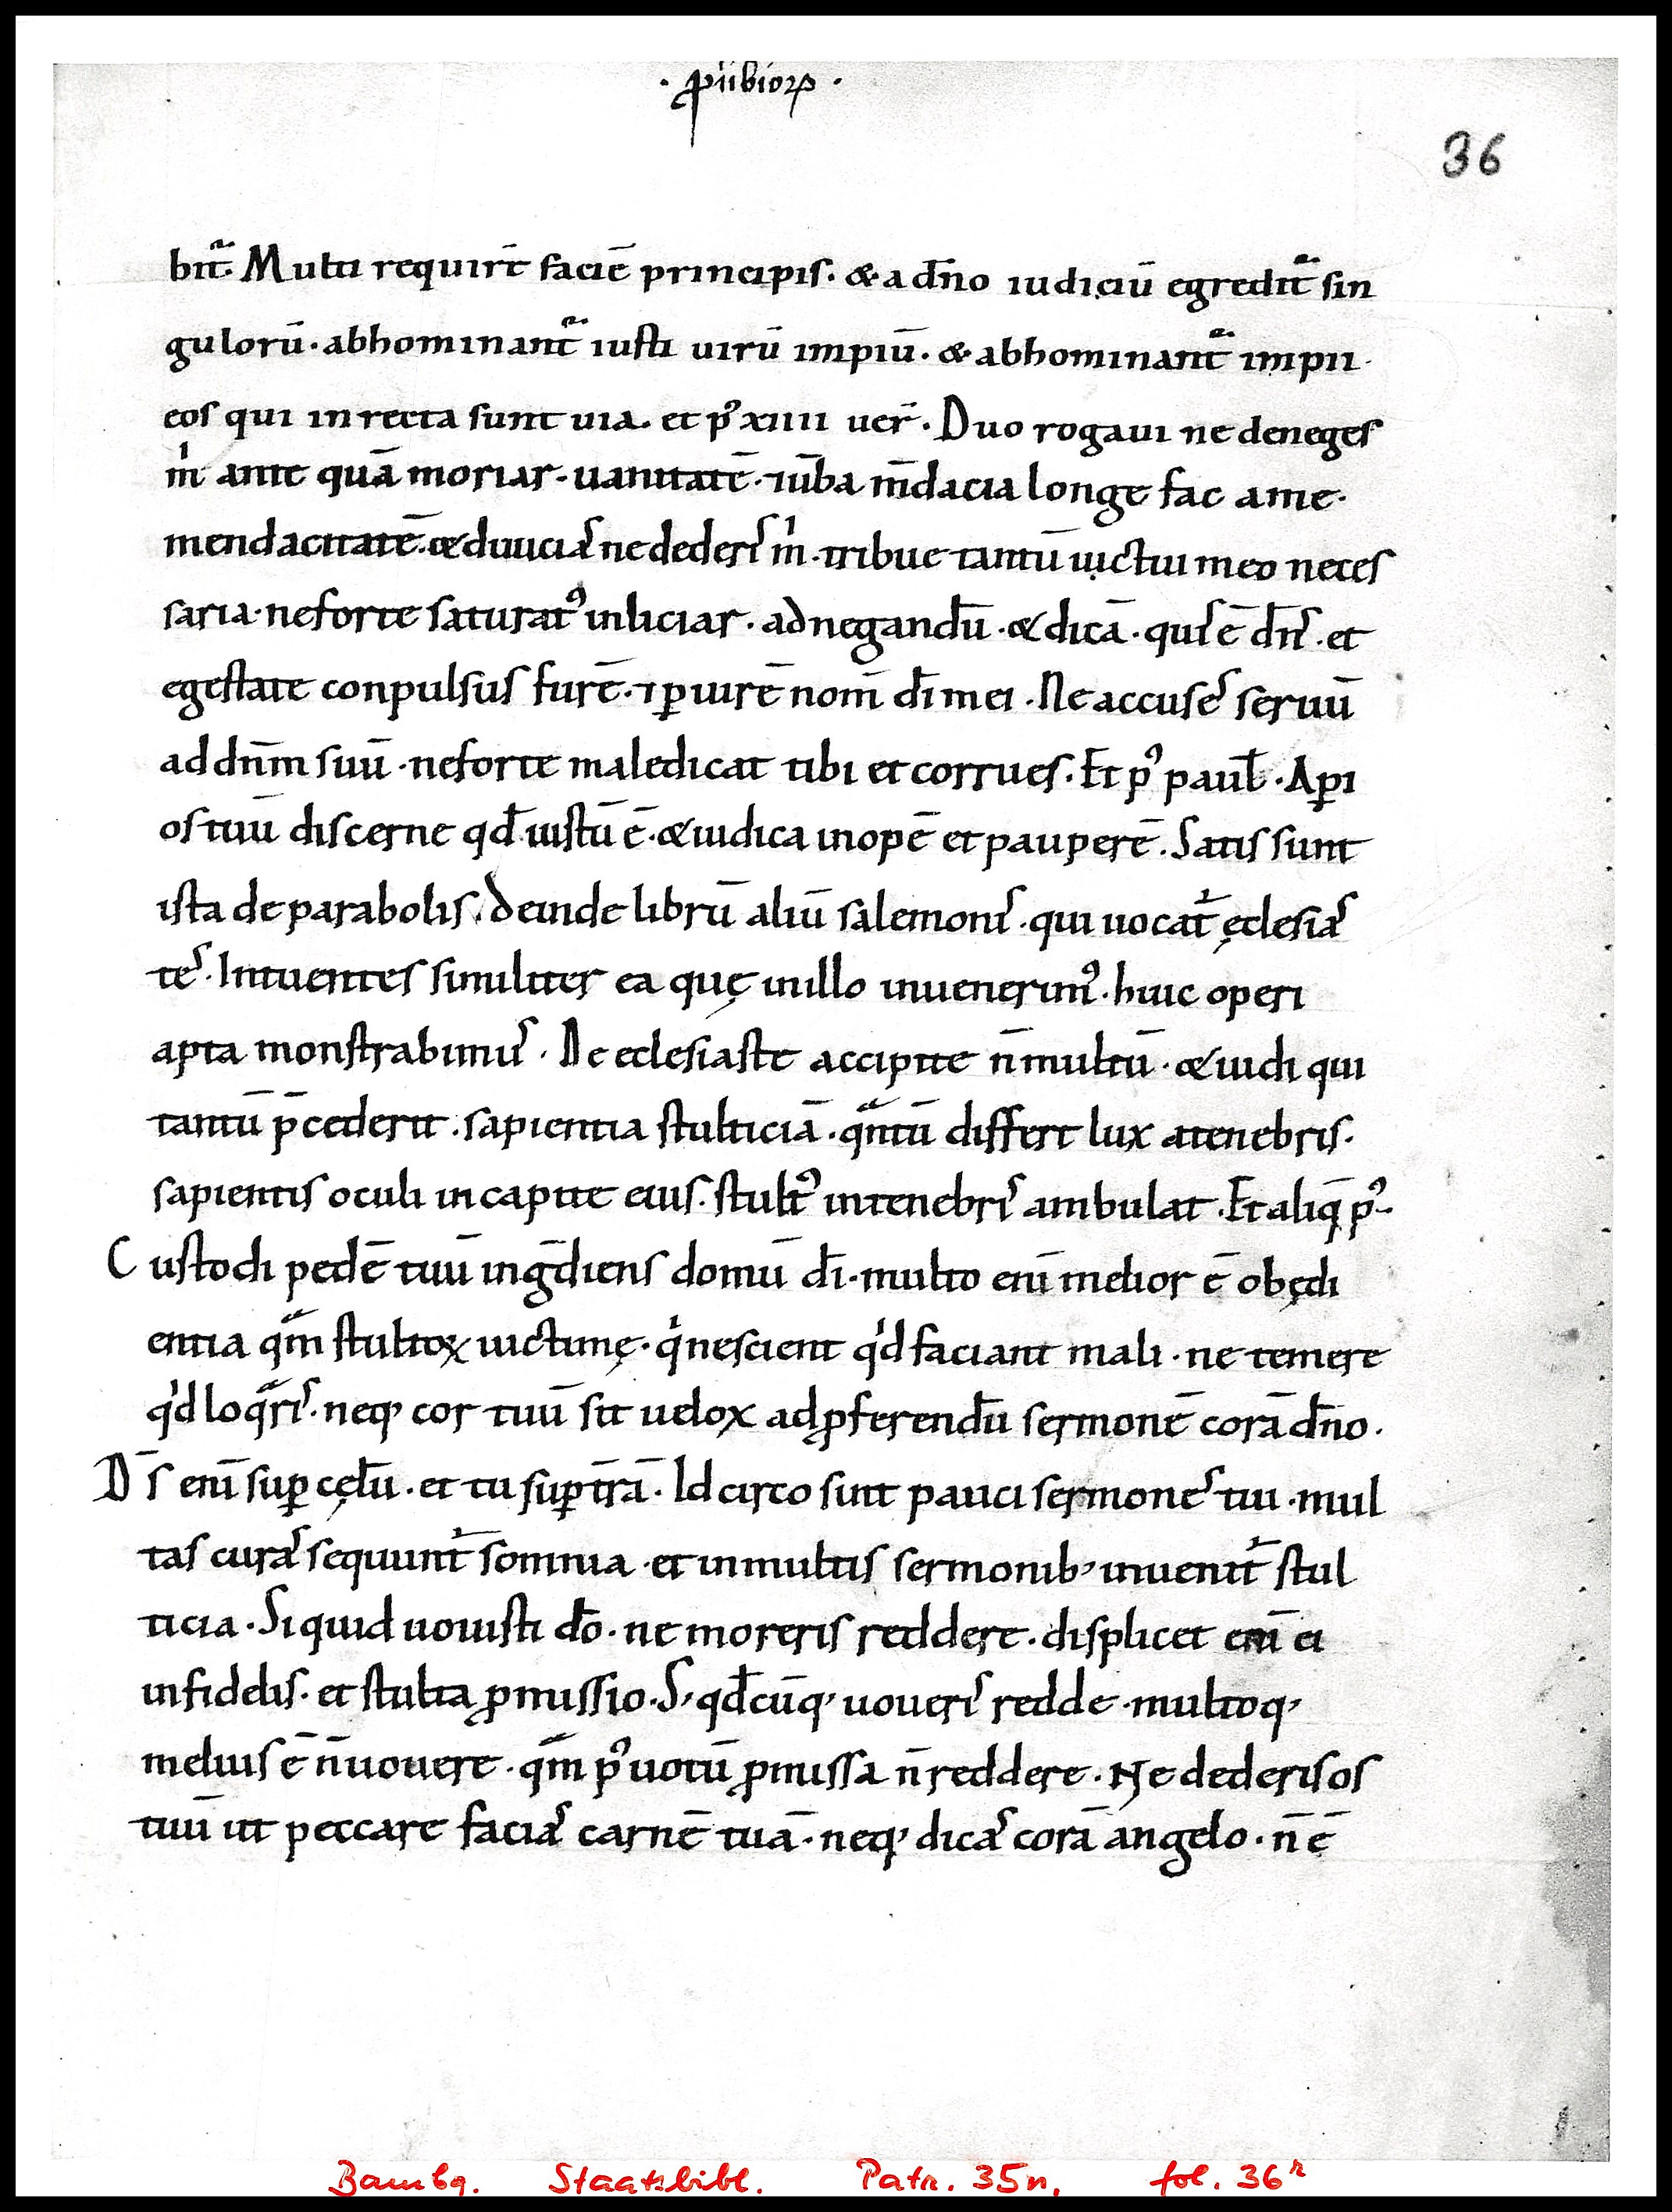 · ꝓubioꝝ ·
36
bitᷓ. Multi requirt̄ faciē principis. & a dn̄o iudiciū egreditᷓ sin
gulorū. abhominantᷓ iusti uirū impiū. & abhominantᷓ impii.
eos qui in recta sunt uia. et pꝰ xiiii uer̄. Duo rogaui ne deneges
m̍ ante quā moriar. uanitatē. ⁊ ūba m̄dacia longe fac a me.
mendacitatē. & diuiciaˢ ne dederiˢ m̍. tribue tantū uictui meo neces
saria. ne forte saturatꝰ inliciar. ad negandū. & dicā. quiˢ ē dn̄s. et
egestate conpulsus furē. ⁊ ꝑiurē nom̄ dī mei. Ne accuseˢ seruū
ad dn̄m suū. ne forte maledicat tibi et corrues. Et pꝰ paul̄. Aꝑi
os tuū discerne qd̄ iustū ē. & iudica inopē et pauperē. Satis sunt
ista de parabolis. Deinde librū aliū salemoniˢ. qui uocat᷑ ęclesiaˢ
teˢ. Intuentes similiter ea quę in illo inuenerimꝰ. huic operi
apta monstrabimuˢ. De eclesiaste accipite n̄ multū. & uidi qui
tantū p̄cederit. sapientia stulticiā. qᷓntū differt lux a tenebris.
sapientis oculi in capite eius. stultꝰ in tenebriˢ ambulat. Et aliq̄ pꝰ.
Custodi pedē tuū inḡdiens domū dī. multo enī melior ē obędi
entia qᷓm stultoꝝ uictimę. q̍ nescient q̍d faciant mali. ne temere
q̍d loqᷓriˢ. neqꝫ cor tuū sit uelox ad ꝓferendū sermonē corā dn̄o.
Ds̄ enī suꝑ cęlū. et tu suꝑ tr̄ā. Id circo sint pauci sermoneˢ tui. mul
tas curaˢ sequunt᷑ somnia. et in multis sermonibꝫ inuenit᷑ stul
ticia. Si quid uouisti dō. ne moreris reddere. displicet enī ei
infidelis. et stulta ꝓmissio. Sꝫ qd̄cūqꝫ uoueriˢ redde. multoqꝫ
melius ē n̄ uouere. qᷓm pꝰ uotū ꝓmissa n̄ reddere. Ne dederis os
tuū ut peccare faciaˢ carnē tuā. neqꝫ dicaˢ corā angelo. n̄ ē
Bambg. Staatsbibl. Patr. 35n, fol. 36ʳ